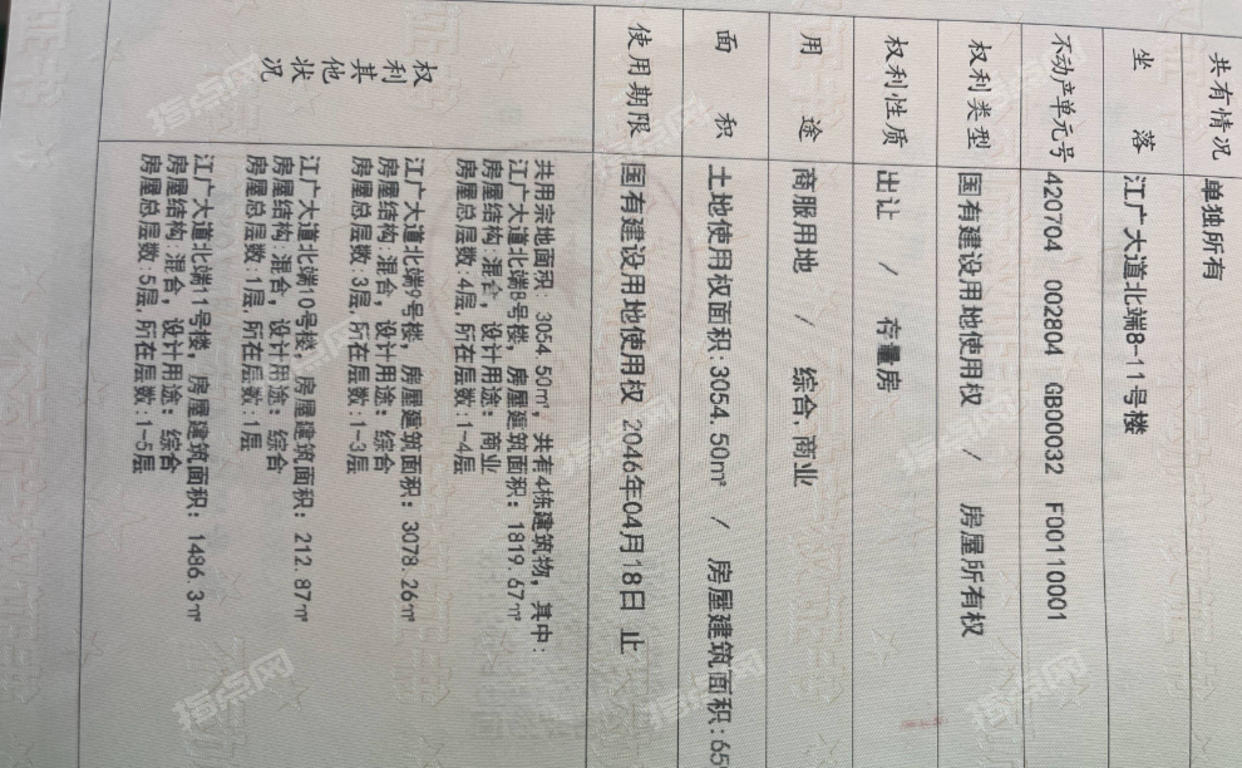 共有情况 单独所有
坐落 江广大道北端8-11号楼
不动产单元号 420704 002804 GB00032 F00110001
权利类型 国有建设用地使用权 / 房屋所有权
权利性质 出让 / 存量房
用途 商服用地 / 综合,商业
面积 土地使用权面积:3054.50㎡ / 房屋建筑面积:65
使用期限 国有建设用地使用权 2046年04月18日 止
权利其他状况
共用宗地面积: 3054.50㎡, 共有4栋建筑物, 其中:
江广大道北端8号楼, 房屋建筑面积: 1819.67㎡
房屋结构:混合, 设计用途: 商业
房屋总层数:4层,所在层数:1-4层
江广大道北端9号楼, 房屋建筑面积: 3078.26㎡
房屋结构:混合, 设计用途: 综合
房屋总层数:3层,所在层数:1-3层
江广大道北端10号楼, 房屋建筑面积: 212.87㎡
房屋结构:混合, 设计用途: 综合
房屋总层数:1层,所在层数:1层
江广大道北端11号楼, 房屋建筑面积: 1486.3㎡
房屋结构:混合, 设计用途: 综合
房屋总层数:5层,所在层数:1-5层
指点网
指点网
指点网
指点网
指点网
指点网
指点网
指点网